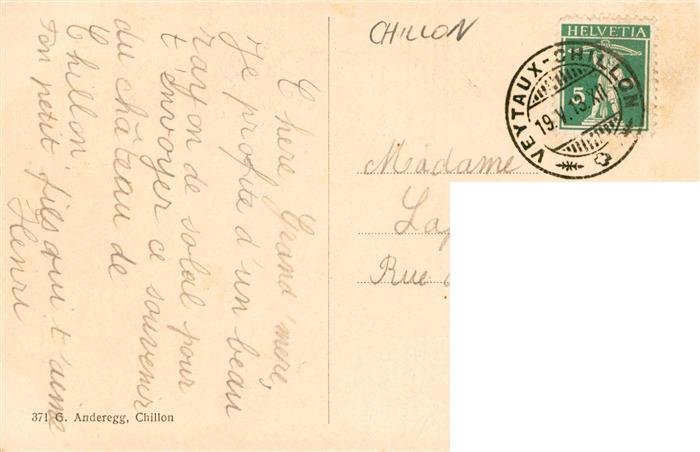 CHILLON
HELVETIA
5
VEYTAUX-CHILLON
19.V.13.XII
Chère Grand'mère,
Je profite d'un beau
rayon de soleil pour
t'envoyer ce souvenir
du château de
Chillon.
Ton petit fils qui t'aime
Henri
Madame
Rue
371 G. Anderegg, Chillon